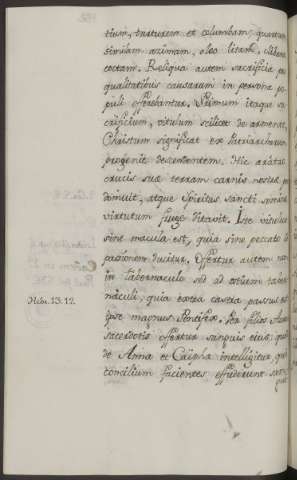 tium, turturem et columbam, quartum
similam azimam, oleo litam, cliban
coctam. Reliqua autem sacrificia ex
qualitatibus causarum in persona po
puli offerebantur. Primum itaque sa
crificium, vitulum scilicet de armento,
Christum significat ex Patriarcharum
progenie descendentem. Hic aratro
crucis suae terram carnis nostrae per
domuit, atque Spiritus Sancti semine
virtutum fruge ditavit. Iste vitulus
sine macula est, quia sine peccato
passionem ducitur. Offertur autem non
in tabernaculo sed ad ostium taber
naculi, quia extra castra passus est
Hebr. 13. 12.
ipse magnus Pontifex. Per filios Aaron
sacerdotis offertur sanguis eius; quod
de Anna et Caipha intelligitur, qui
concilium facientes effuderunt san